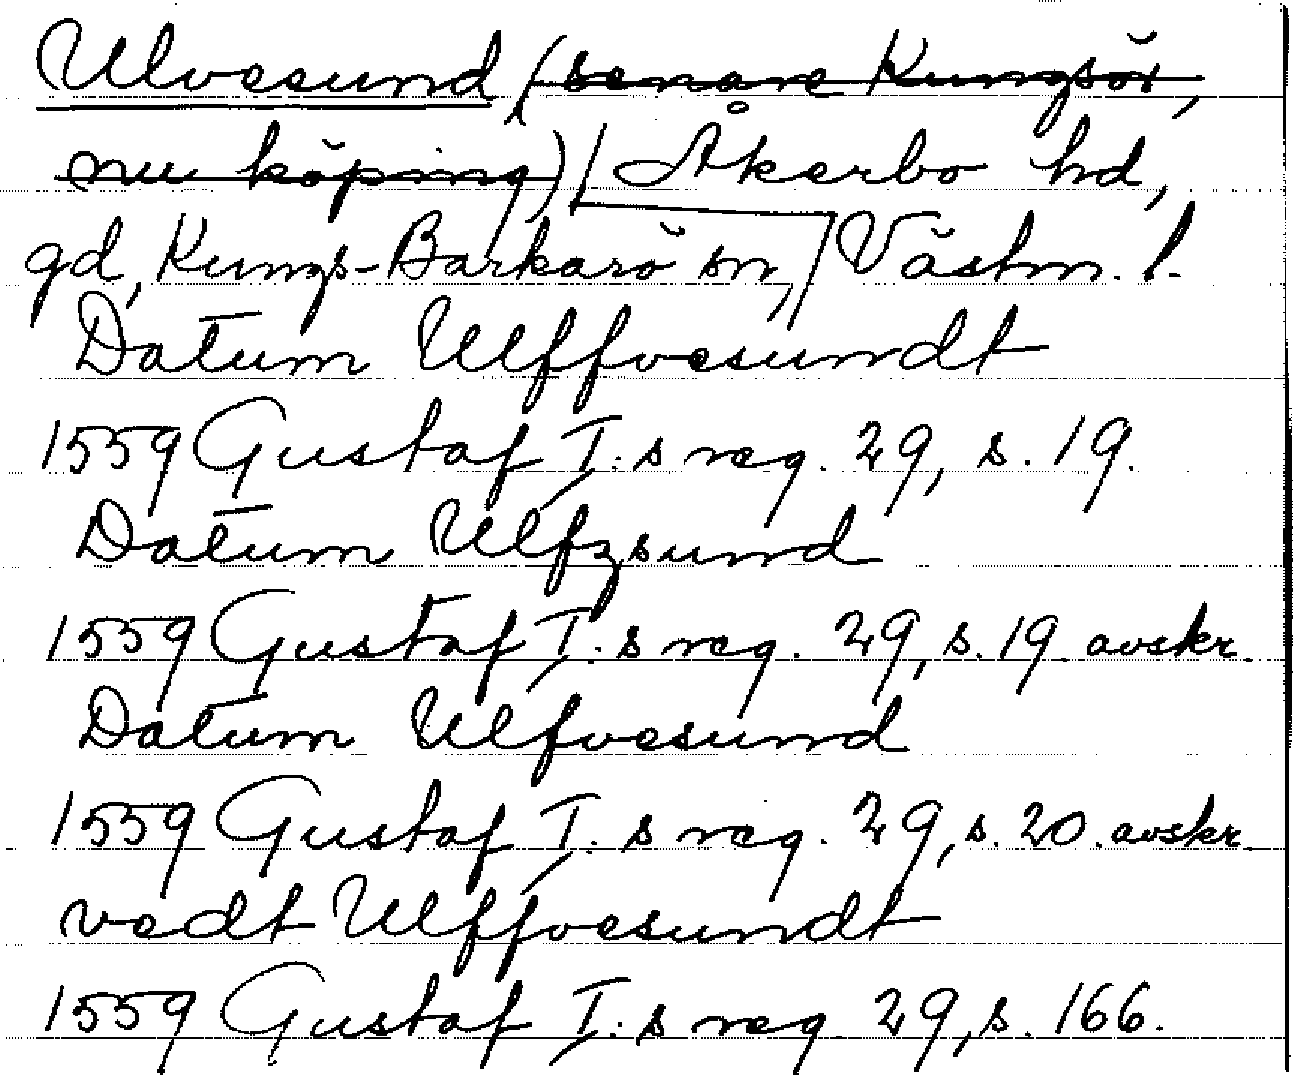 Ulvesund (senare Kungsör,
nu köping) Åkerbo hd,
gd, Kungs-Barkarö sn, Västm. l.
Datum Ulffvesundt
1559 Gustaf I:s reg. 29, s. 19.
Datum Ulfzsund
1559 Gustaf I:s reg. 29, s. 19. avskr.
Datum Ulfvesund
1559 Gustaf I:s reg. 29, s. 20. avskr.
vedt Ulffvesundt
1559 Gustaf I:s reg. 29, s. 166.